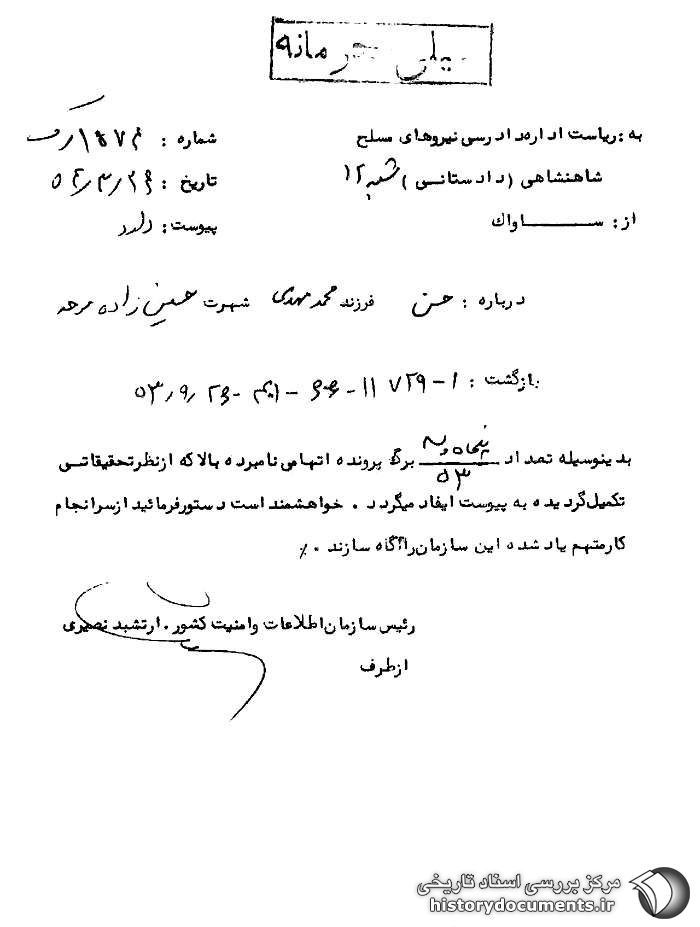 خیلی محرمانه
به: ریاست اداره دادرسی نیروهای مسلح
شماره :
شاهنشاهی (دادستانی) شعبه ۱۲
تاریخ :
از: ســـــاواك
پیوست: دارد
درباره : حسن فرزند محمد مهدی شهرت حسین زاده موحد
بازگشت :
بدینوسیله تعداد پنجاه و سه ۵۳ برگ پرونده اتهامی نامبرده بالا که از نظر تحقیقاتی
تکمیل گردیده به پیوست ایفاد میگردد . خواهشمند است دستور فرمائید از سرانجام
کار متهم یاد شده این سازمان را آگاه سازند .٪
رئیس سازمان اطلاعات و امنیت کشور . ارتشبد نصیری
از طرف
مرکز بررسی اسناد تاریخی
historydocuments.ir